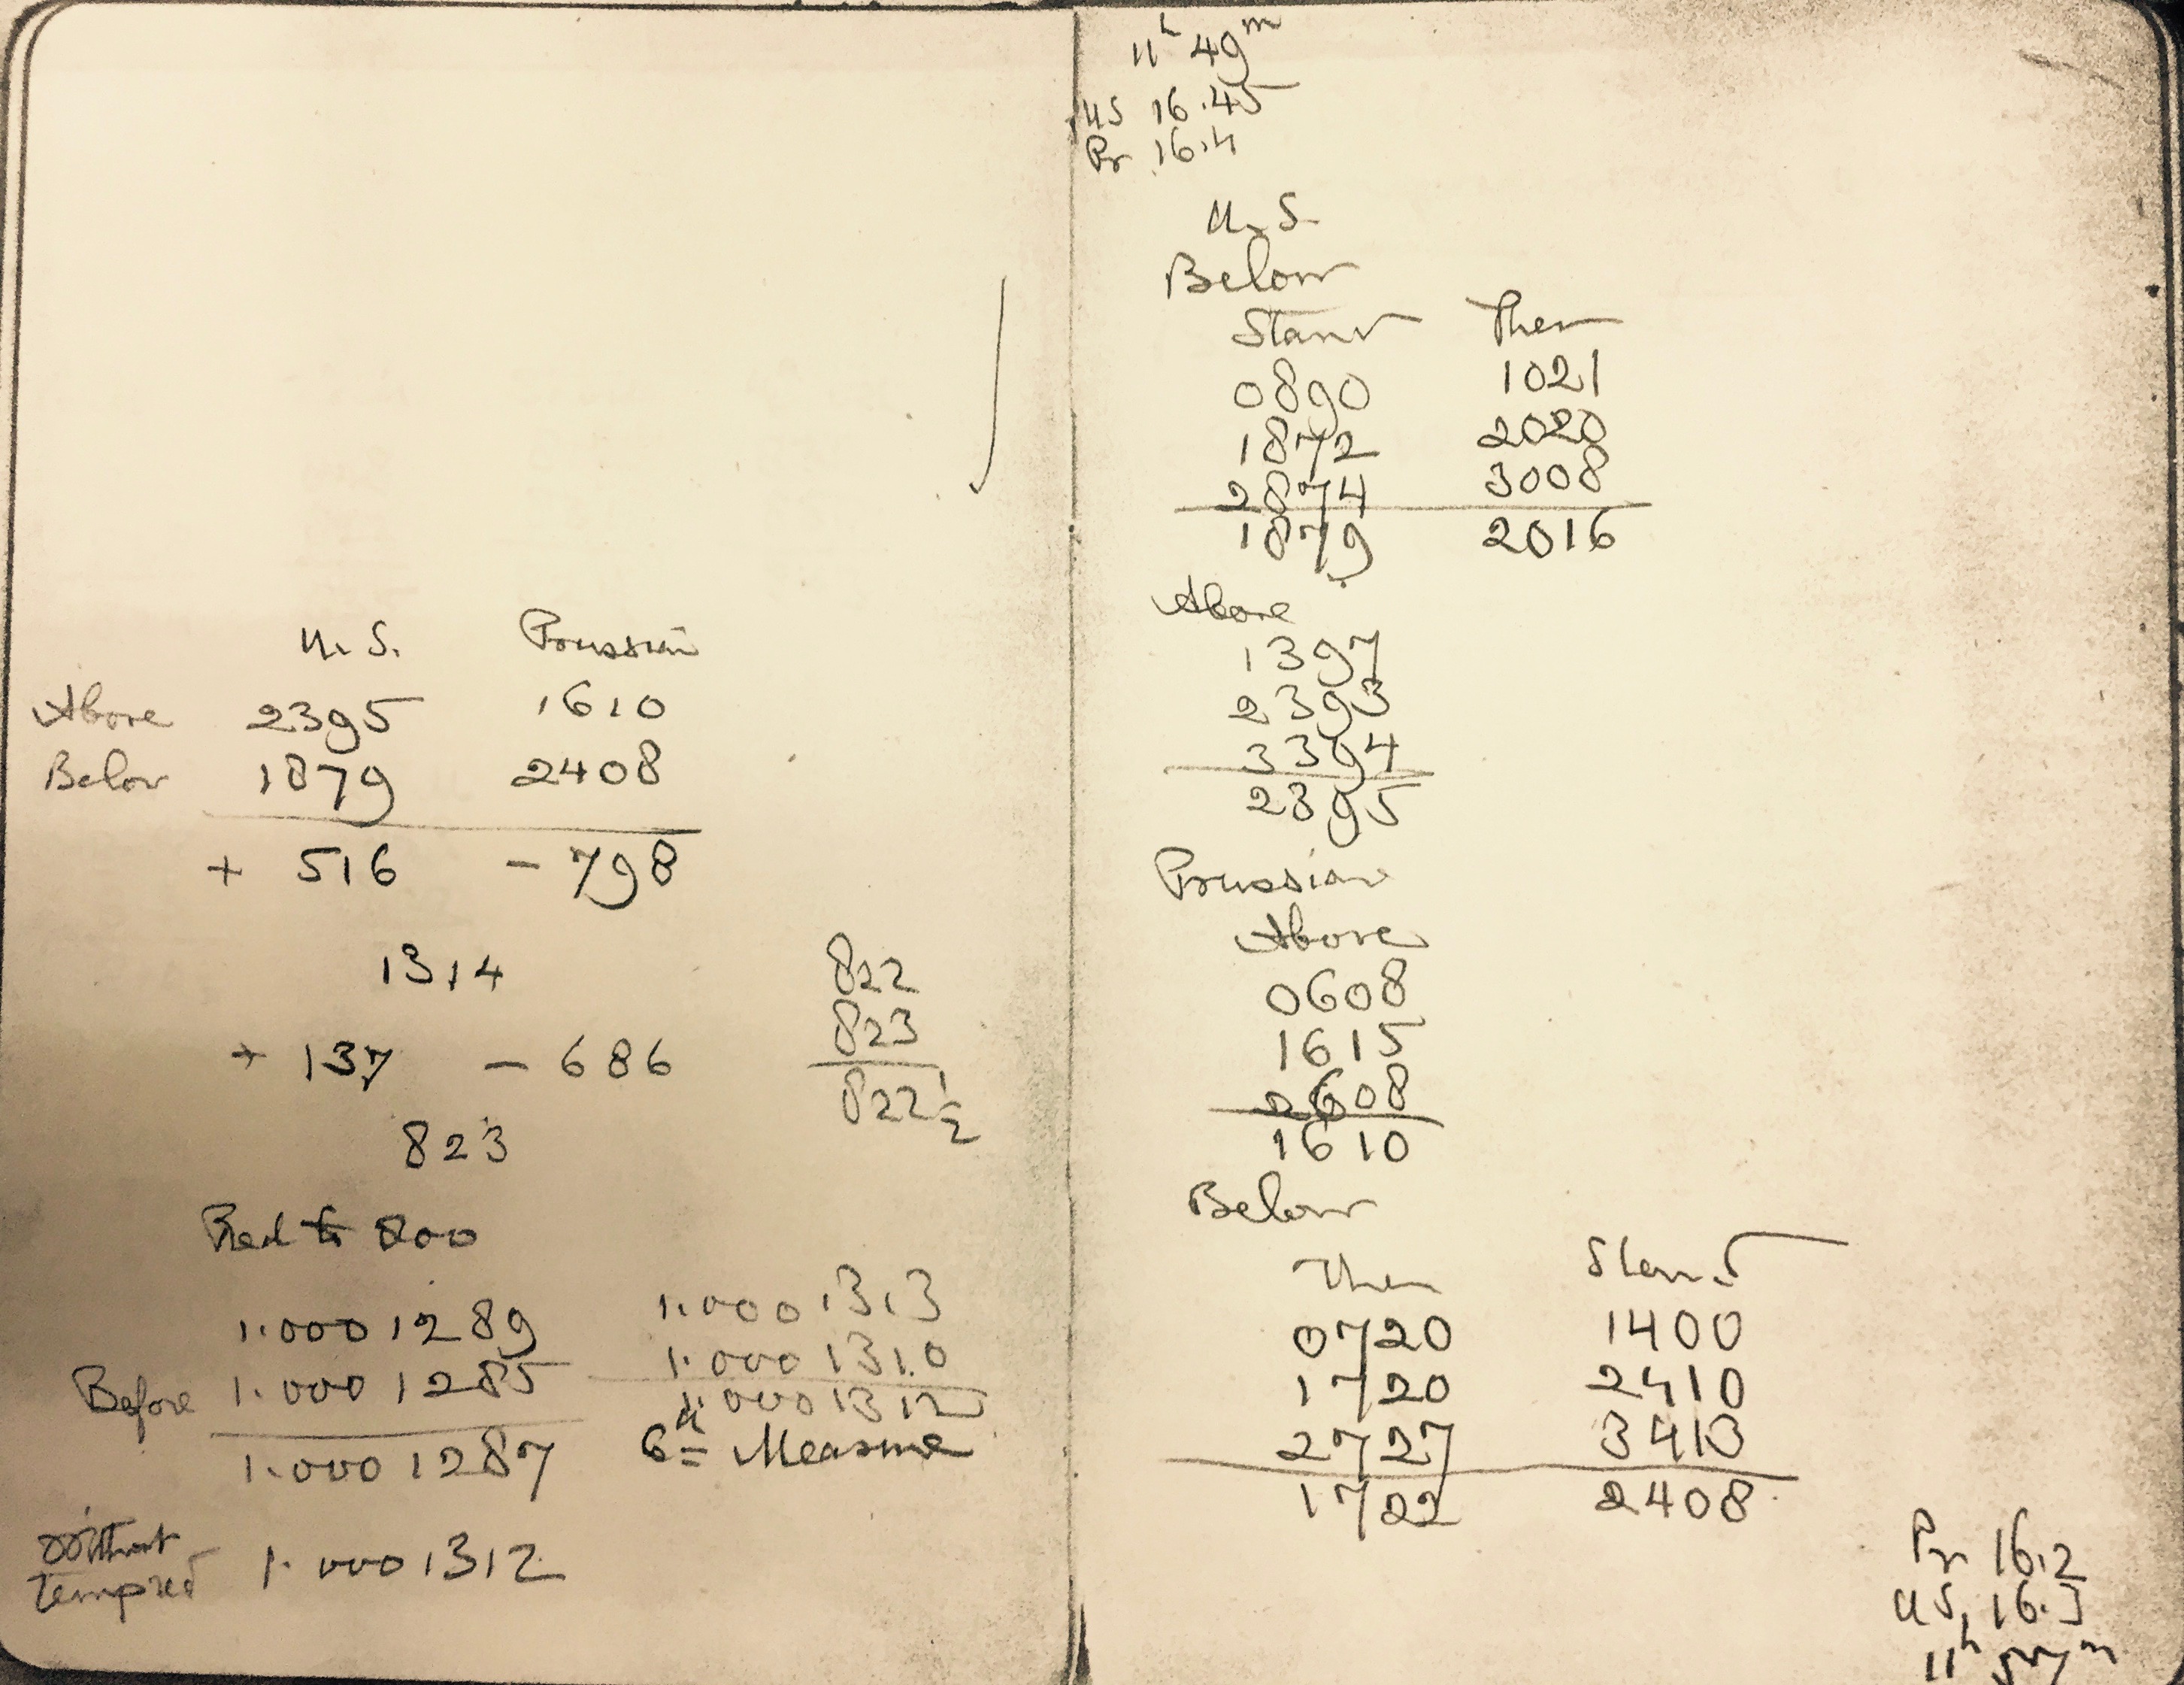 U.S. Prussian
Above 2395 1610
Below 1879 2408
+ 516 - 798
1314
822
823
822 1/2
+ 137 - 686
823
Red to 800
1.0001289
Before 1.0001285
1.0001287
1.0001313
1.0001310
1.0001312
6th Measure
Without
temp red 1.0001312
11h 49m
US 16.45
Pr 16.4
U.S.
Below
Stand Ther
0890 1021
1872 2020
2874 3008
1879 2016
Above
1397
2393
3394
2395
Prussian
Above
0608
1615
2608
1610
Below
Ther Stand
0720 1400
1720 2410
2727 3413
1722 2408
Pr 16.2
US. 16.3
11h 57m